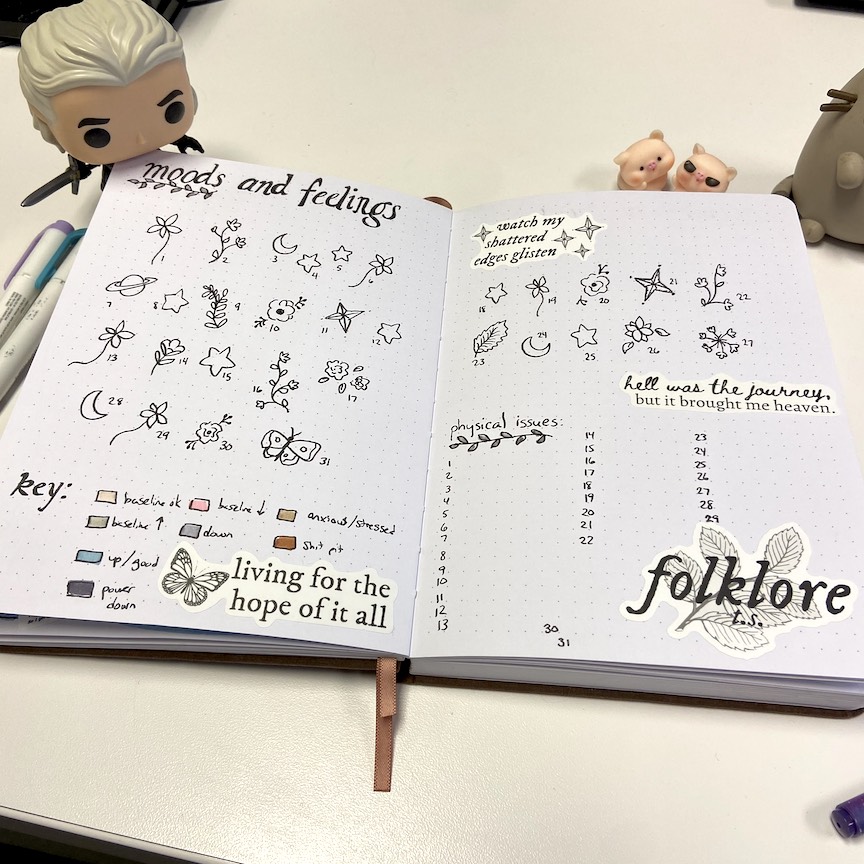 moods and feelings
1 2 3 4 5 6
7 8 9 10 11 12
13 14 15 16 17
28 29 30 31
key:
baseline ok baseline ↓ anxious/stressed
baseline ↑ down shit pit
up/good
power
down
living for the
hope of it all
watch my
shattered
edges glisten
18 19 20 21 22
23 24 25 26 27
hell was the journey,
but it brought me heaven.
physical issues:
1
2
3
4
5
6
7
8
9
10
11
12
13
14
15
16
17
18
19
20
21
22
23
24
25
26
27
28
29
30
31
folklore
t.s.